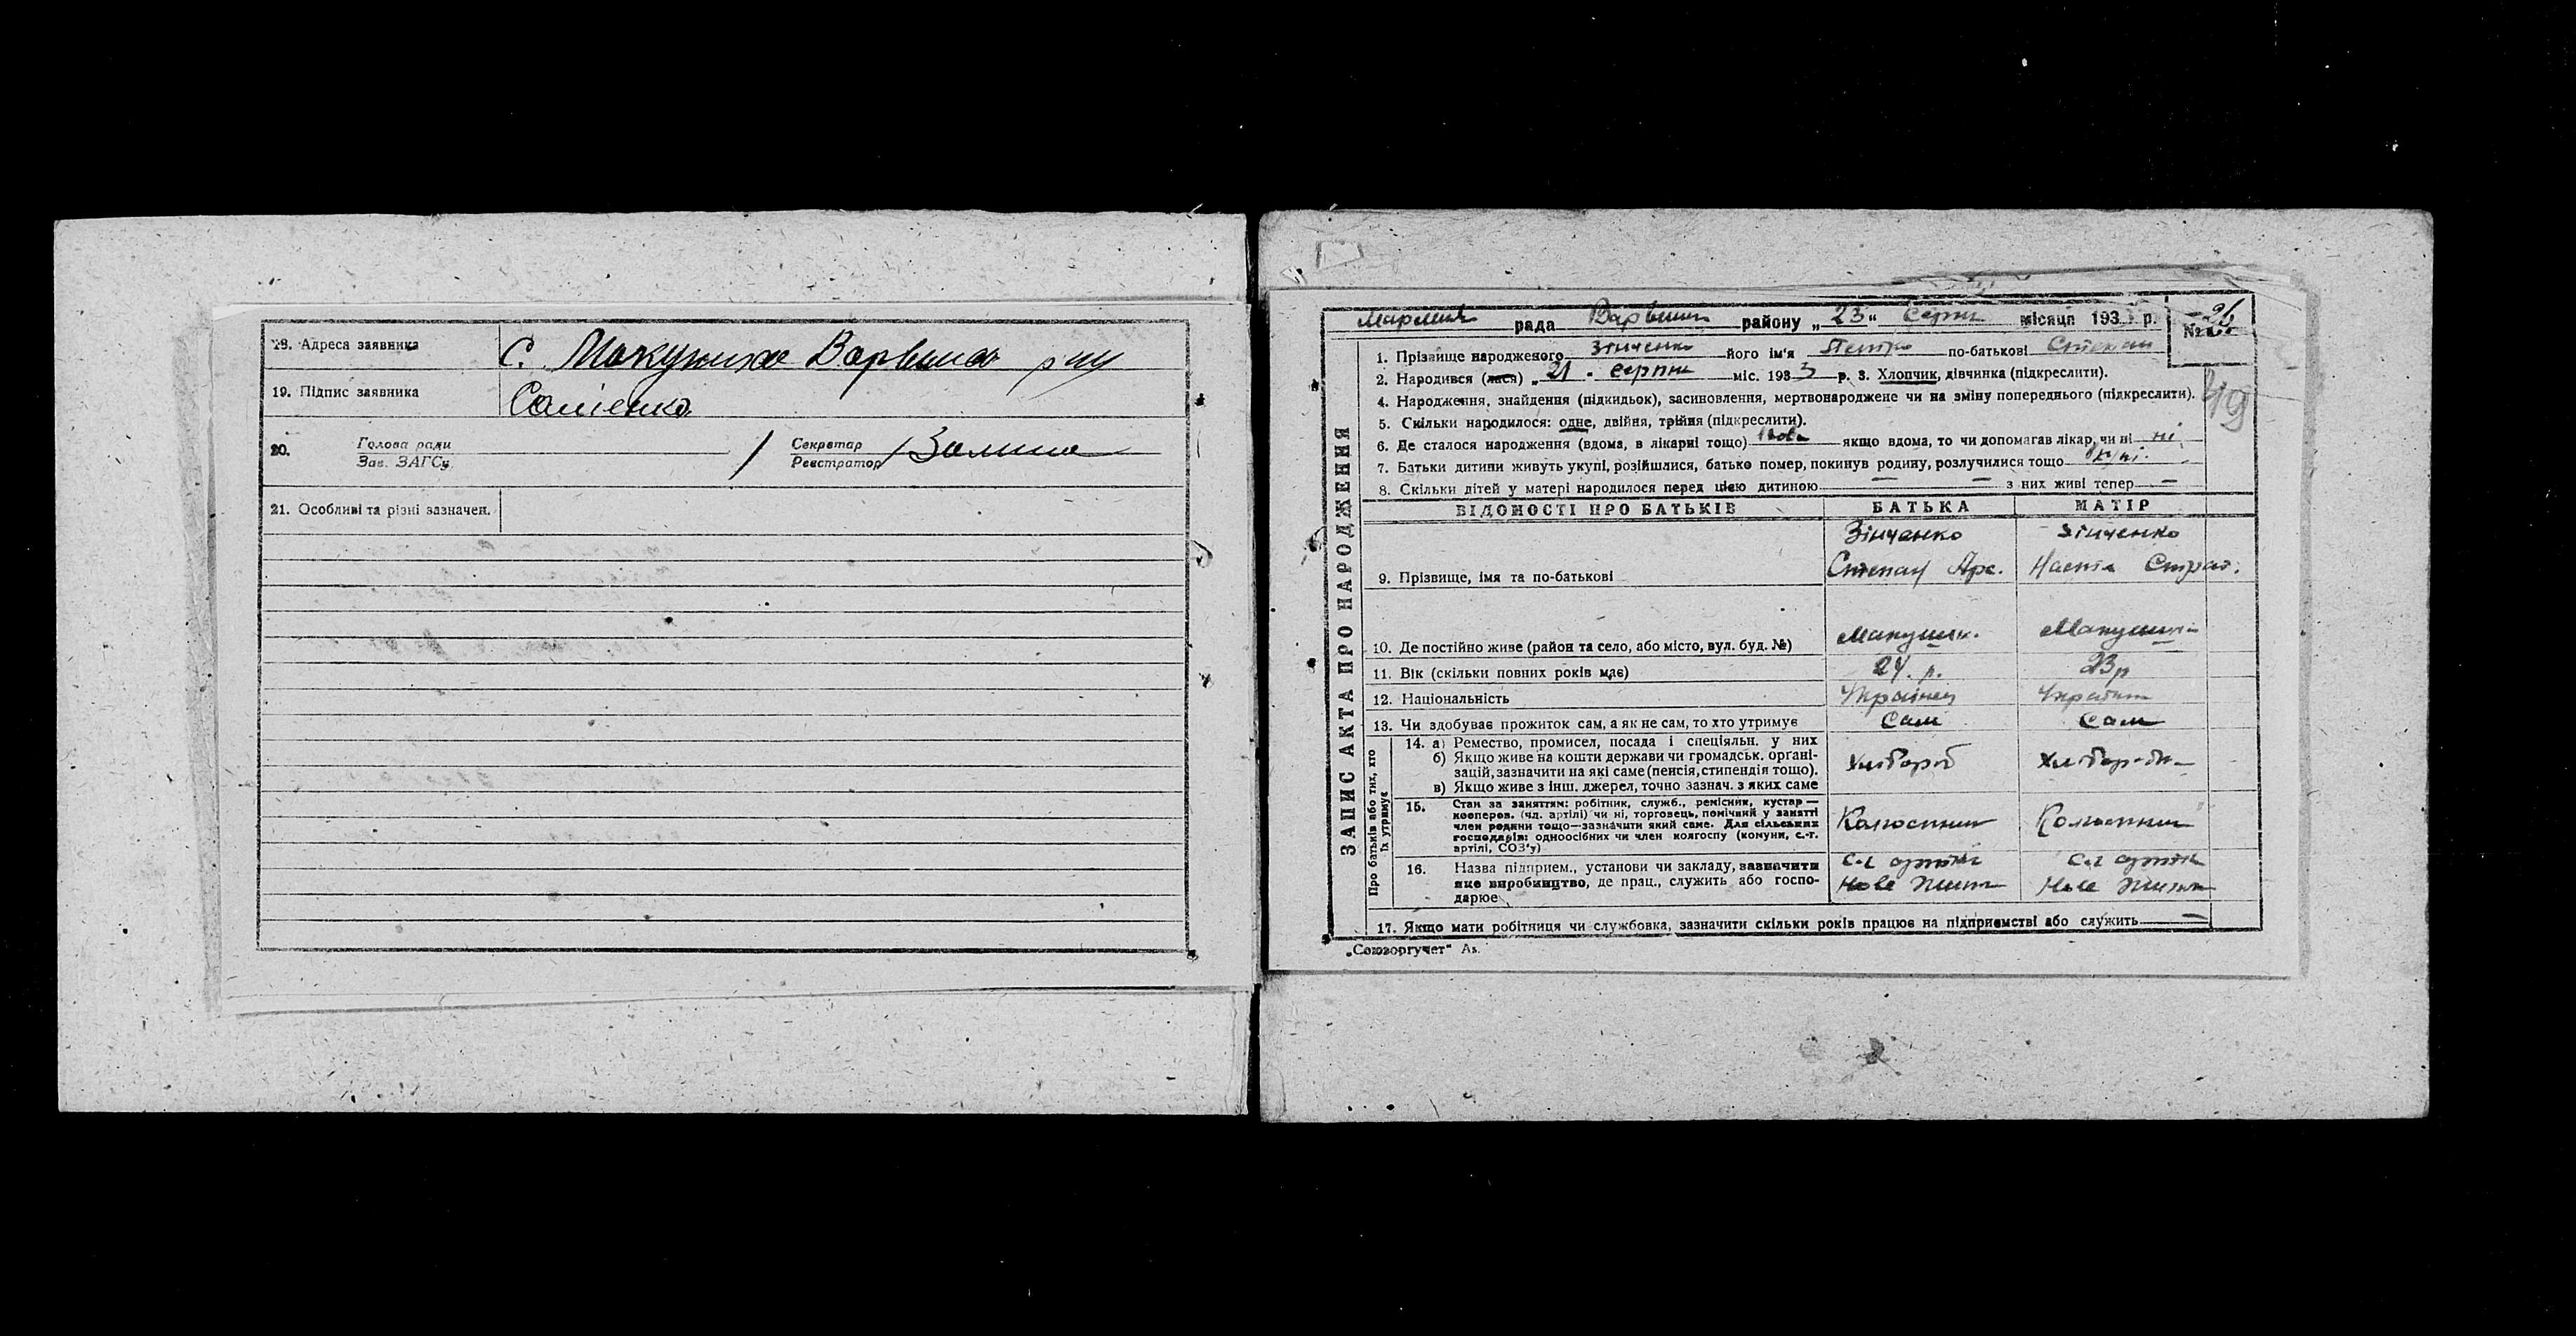 18. Адреса заявника С. Макушиха Варвинс р ну
19. Підпис заявника Самієнко
20. Голова ради
Зав. ЗАГСу
Секретар
Реєстратор
21. Особливі та різні зазначен.
рада Варвинс району „23“ Серпн місяця 193 р. №
ЗАПИС АКТА ПРО НАРОДЖЕННЯ
1. Прізвище народженого Зінченко його ім'я Петро по-батькові Степан
2. Народився (лася) „21 . серпня міс. 1933 р. 3. Хлопчик, дівчинка (підкреслити).
4. Народження, знайдення (підкидьок), засиновлення, мертвонароджене чи на зміну попереднього (підкреслити).
49
5. Скільки народилося: одне, двійня, трійня (підкреслити).
6. Де сталося народження (вдома, в лікарні тощо) якщо вдома, то чи допомагав лікар, чи ні ні
7. Батьки дитини живуть укупі, розійшлися, батько помер, покинув родину, розлучилися тощо укупі.
8. Скільки дітей у матері народилося перед цією дитиною — — з них живі тепер —
ВІДОМОСТІ ПРО БАТЬКІВ БАТЬКА МАТІР
Зінченко Зінченко
9. Прізвище, імя та по-батькові Степан Арс. Настя Страт.
10. Де постійно живе (район та село, або місто, вул. буд. №) Макуших. Макуших
11. Вік (скільки повних років має) 24. р. 23 р
12. Національність Українец Україн
13. Чи здобуває прожиток сам, а як не сам, то хто утримує Сам Сам
Про батьків або тих, хто їх утримує
14. а) Ремество, промисел, посада і спеціяльн. у них
б) Якщо живе на кошти держави чи громадськ. органі-
зацій, зазначити на які саме (пенсія, стипендія тощо). Хлібороб
в) Якщо живе з інш. джерел, точно зазнач. з яких саме
15. Стан за заняттям: робітник, служб., ремісник, кустар —
кооперов. (чл. артілі) чи ні, торговець, помічний у занятті
член родини тощо—зазначити який саме. Для сільських Колгоспник Колгоспник
господарів: одноосібних чи член колгоспу (комуни, с.-г.
артілі, СОЗ'у)
16. Назва підприєм., установи чи закладу, зазначити с.г артіль с.г артіль
яке виробництво, де прац., служить або госпо- Нове Життя Нове Життя
дарює
17. Якщо мати робітниця чи службовка, зазначити скільки років працює на підприємстві або служить —
„Союзоргучет“ Аз.